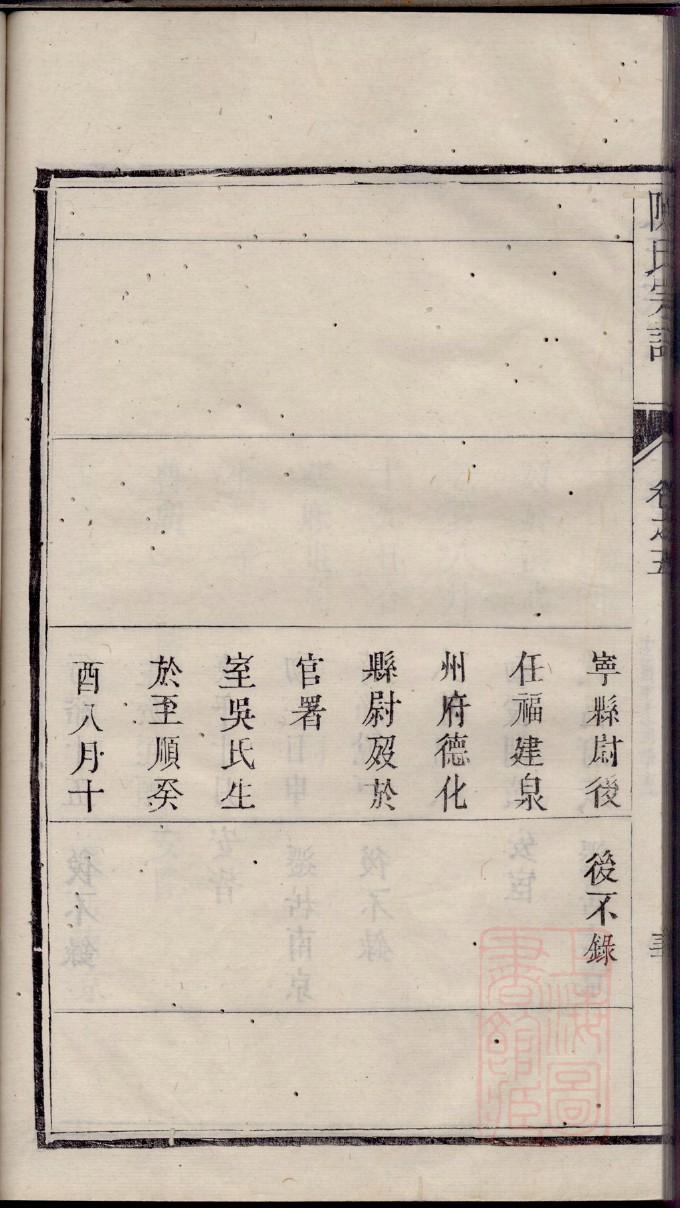 陳氏宗譜
卷之五
寧縣尉後
任福建泉
州府德化
縣尉歿於
官署
室吳氏生
於至順癸
酉八月十
後不錄